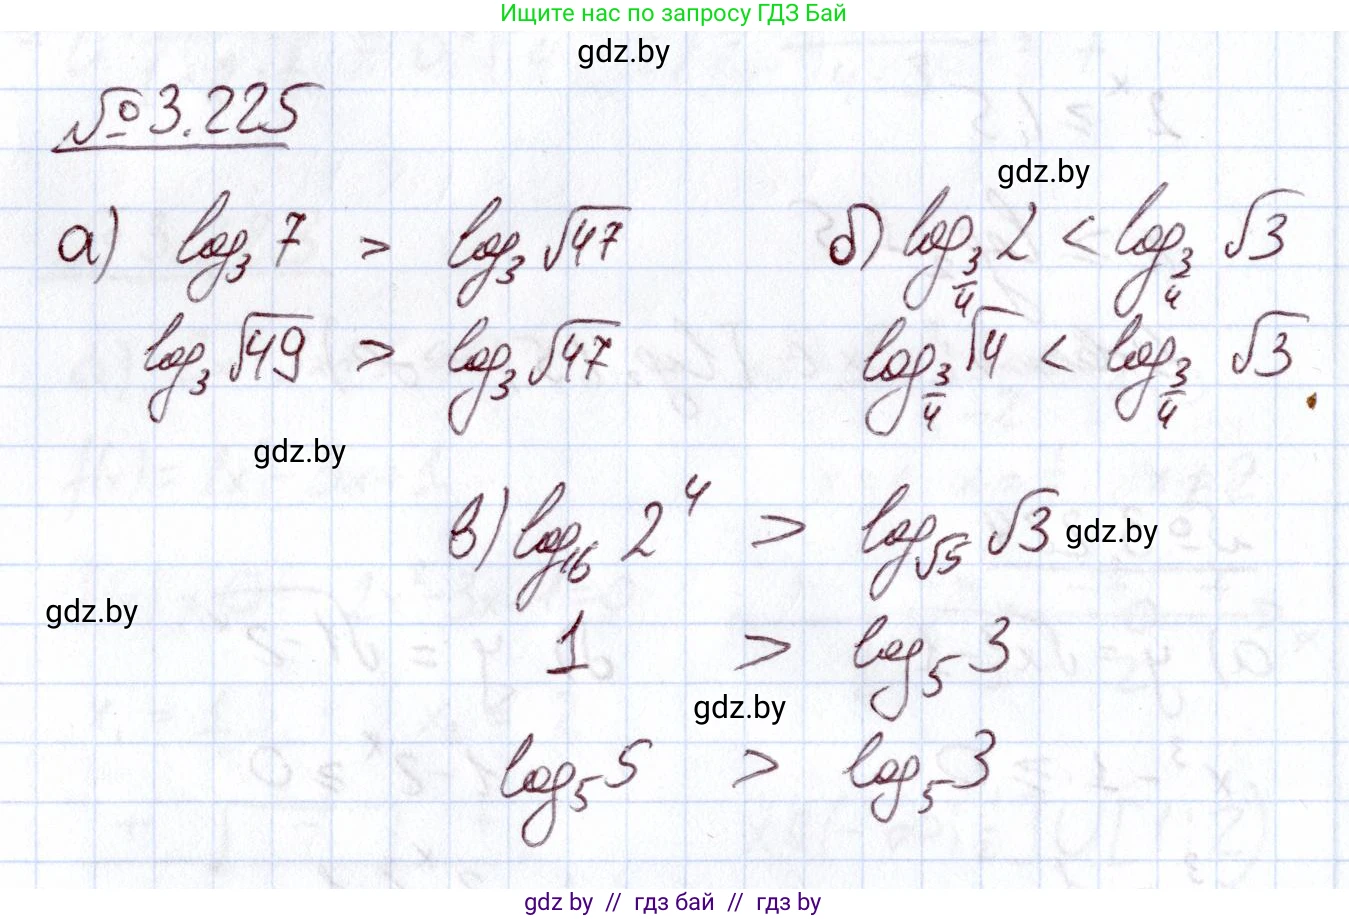 Ищите нас по запросу ГДЗ Бай
gdz.by
№ 3.225
gdz.by
а) log₃ 7 > log₃ √47
б) log_{3/4} 2 < log_{3/4} √3
log₃ √49 > log₃ √47
log_{3/4} √4 < log_{3/4} √3
gdz.by
в) log₁₆ 2⁴ > log_{√5} √3
gdz.by
gdz.by
1 > log₅ 3
gdz.by
log₅ 5 > log₅ 3
gdz by // гдз бай // гдз by